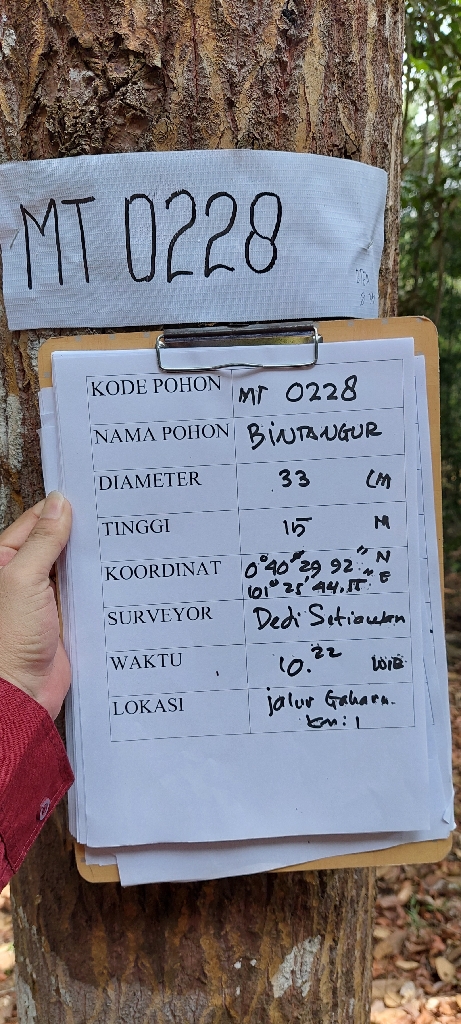 MT 0228
KODE POHON MT 0228
NAMA POHON BINTANGUR
DIAMETER 33 CM
TINGGI 15 M
KOORDINAT 0° 40' 29 92" N
101° 25' 44.55" E
SURVEYOR Dedi Setiawan
WAKTU 10.22 WIB
LOKASI jalur Gaharu.
km: 1